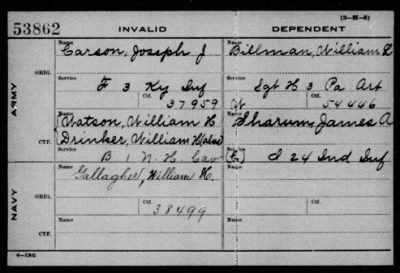 (3-M-5)
53862 INVALID DEPENDENT
Name Name
Carson, Joseph J Billman, William
ORIG. Service Service
F 3 Ky Inf Sgt H 3 Pa Art
Ctf. Ctf.
37959 W 54446
ARMY
Name Name
Watson, William H Sharum, James A
Drinker, William H (alias)
CTF. Service Service
B 1 N. H. Cav (C) d 24 Ind Inf
Name Name
Gallagher, William H.
ORIG. Ctf. Ctf.
38499
NAVY
Name Name
CTF.
6-1302